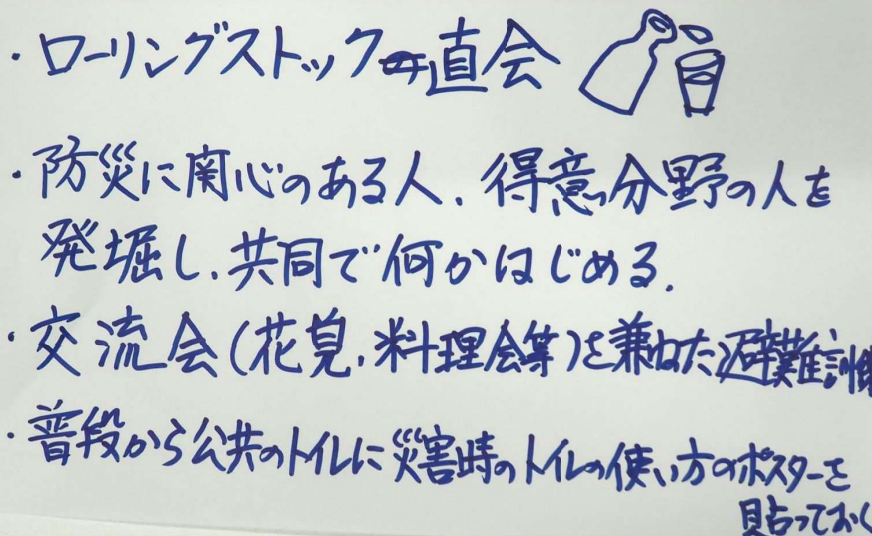 ・ローリングストック直会
・防災に関心のある人、得意分野の人を
発掘し、共同で何かはじめる.
・交流会(花見、料理会等)を兼ねた避難訓練
・普段から公共のトイレに災害時のトイレの使い方のポスターを
貼っておく